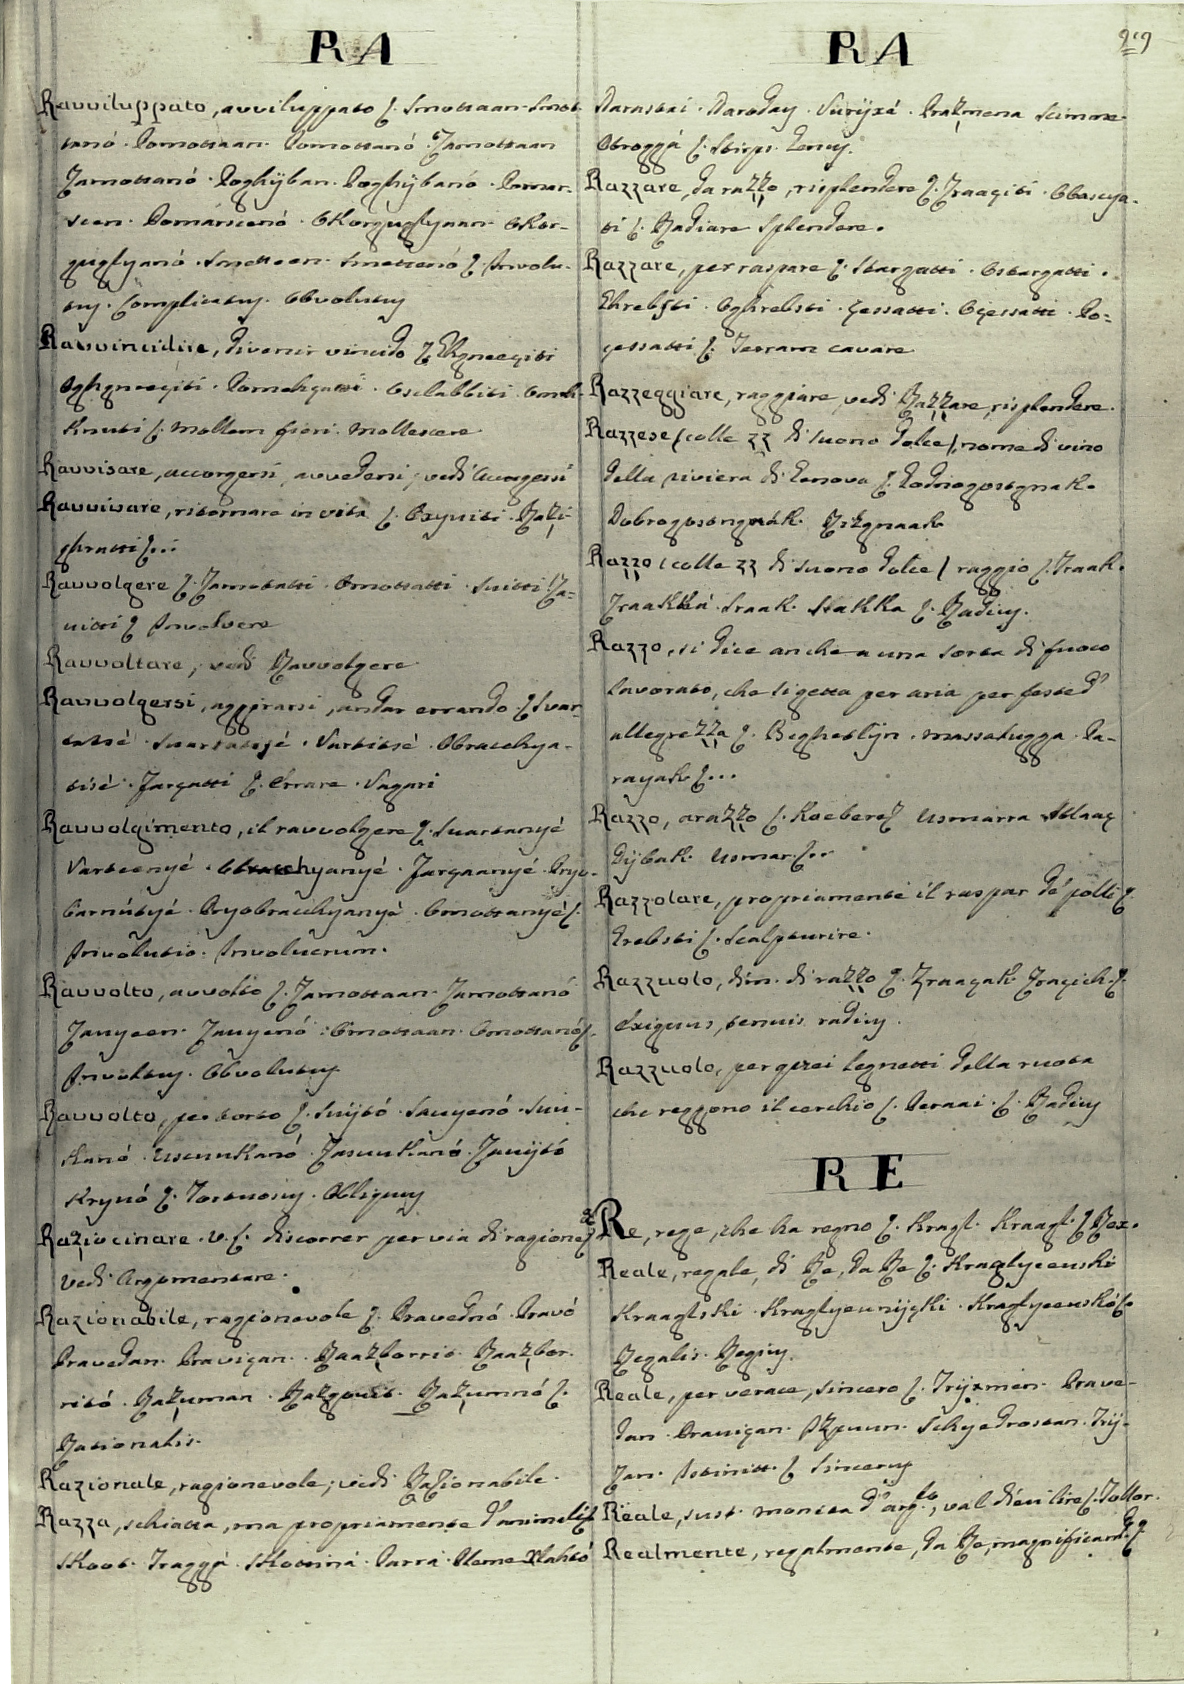 RA
Ravviluppato, avviluppato ſ. Smottaan. Smot-
tanó. Pomottaan. Pomottanó. Zamottaan
Zamottanó. Poghÿban. Poghÿbanó. Pomar-
scen. Pomarscenó. Okorguglyaan. Okor-
guglyanó. Smetteen. Smettenó ſ Involu-
tus. Complicatus. Obvolutus
Ravvincidire, divenir vincido ſ Ehgneeçiti
Oghgneeçiti. Pomehçatti. Osclabbiti. Omek-
knuti ſ. Mollem fieri. Mollescere
Ravvisare, accorgersi, avvedersi, vedi Accorgersi
Ravvivare, ritornare in vita ſ. Oxyviti.
ghratti ſ...
Ravvolgere ſ. Zamotatti. Omottatti. Suitti. Za-
uitti ſ Involvere
Ravvoltare, vedi Ravvolgere
Ravvolgersi, aggirarsi, andar errando ſ. Svar-
tatisé. Vartitisé. Obratchya-
tisé. Jarçatti ſ. Errare. Vagari
Ravvolgimento, il ravvolgere ſ. Svartanyé
Varteenyé. Obratchyanyé. Jarçaanyé. Pryo-
barnútyé. Pryobracchyanyé. Omottanyé ſ.
Involutio. Involucrum.
Ravvolto, avvolto ſ. Zamottaan. Zamottanó
Zauyeen. Zauyenó. Omottaan. Omottanó ſ.
Involtus. Obvolutus
Ravvolto, per torto ſ. Suÿtó. Sauyenó. Suu-
kanó. Usuukanó. Zasuukanó. Zauÿtó
Kryuó ſ. Tortuosus. Obliquus
Raziocinare. v. ſ. discorrer per via di ragione ſ
vedi Argomentare.
Razionabile, ragionevole ſ. Pravednó. Pravó
Pravedan. Praviçan. Raazborrit. Raazbor-
ritó. Razuman. Razumnó ſ.
Rationalis.
Razionale, ragionevole, vedi Razionabile.
Razza, schiatta, ma propriamente d'animali ſ
Skoot. Traggá. Skottina. Parra. Pleme.
RA
Narastai. Naroday. Vurÿxá. Prazmena. Scimme.
Otroggá ſ. Stirps. Genus.
Razzare, da razzo, risplendere ſ. Zraaçiti. Obascya-
ti ſ. Radiare. Splendere.
Razzare, per raspare ſ. Stargatti. Ostargatti.
Ehrebsti. Oghrebsti. Çessatti. Oçessatti. Po-
çessatti ſ. Terram cavare
Razzeggiare, raggiare, vedi Razzare, risplendere.
Razzese /colle zz di suono dolce/, nome di vino
della riviera di Genova ſ.
Dobrogostgnák.
Razzo /colle zz di suono dolce/ raggio ſ. Traak.
Zraakká. Sraak. Stakka ſ. Radius.
Razzo, si dice anche a una sorta di fuoco
lavorato, che si getta per aria per feste d'
allegrezza ſ. Begheelÿn. Massatugga. Pa-
rayak ſ...
Razzo, arazzo ſ. Koeberez Usmarra
Dÿbak. Usmar. ſ...
Razzolare, propriamente il raspar de' polli ſ.
Grebsti ſ. Scalpturire.
Razzuolo, dim. di razzo ſ. Zraaçak. Zraçich. ſ.
Exiguus, tenuis radius.
Razzuolo, per quei legnetti della ruota
che reggono il cerchio ſ. Pernai. ſ. Radius
RE
Re, rege, che ha regno ſ. Kragl. Kraagl. ſ Rex.
Reale, regale, di Re, da Re ſ. Kraglyeuski
Kraaglski. Kraglyeuniçki. Kraglyeuskó ſ.
Regalis. Regius.
Reale, per verace, sincero ſ. Trÿzmen. Prave-
dan. Praviçan. Izpuun. Schyedrostan. Trÿ-
zan. Istinitt. ſ Sincerus
Reale, sust. moneta d'arg.to, val di
Realmente, regalmente, da Re, magnificam.te ſ